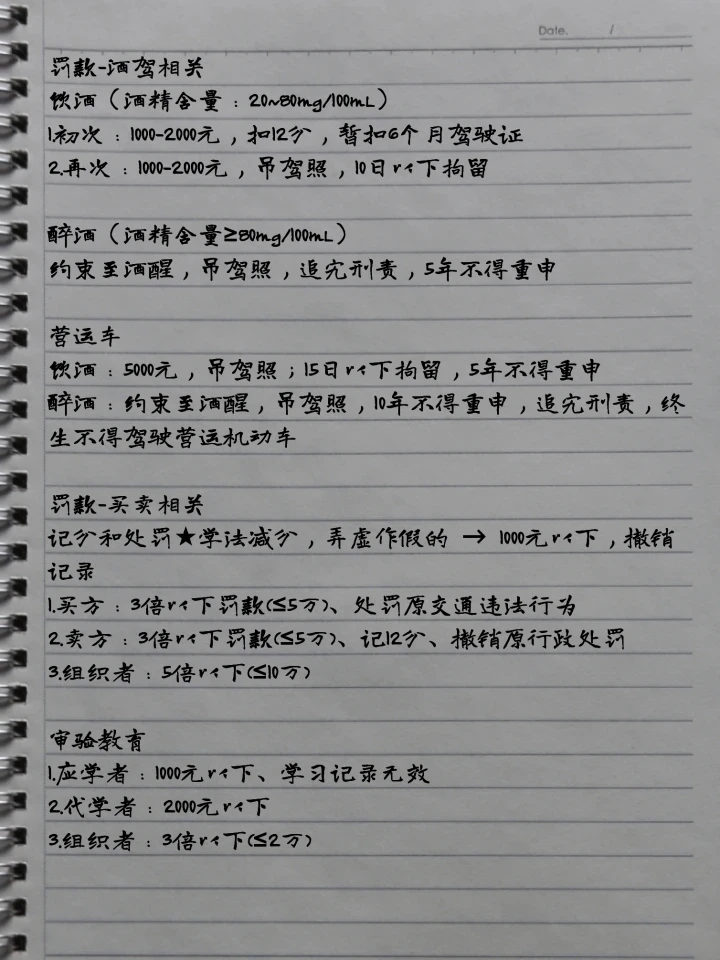 Date. /
罚款-酒驾相关
饮酒（酒精含量：20~80mg/100mL）
1.初次：1000-2000元，扣12分，暂扣6个月驾驶证
2.再次：1000-2000元，吊驾照，10日以下拘留
醉酒（酒精含量≥80mg/100mL）
约束至酒醒，吊驾照，追究刑责，5年不得重申
营运车
饮酒：5000元，吊驾照；15日以下拘留，5年不得重申
醉酒：约束至酒醒，吊驾照，10年不得重申，追究刑责，终
生不得驾驶营运机动车
罚款-买卖相关
记分和处罚★学法减分，弄虚作假的 → 1000元以下，撤销
记录
1.买方：3倍以下罚款(≤5万)、处罚原交通违法行为
2.卖方：3倍以下罚款(≤5万)、记12分、撤销原行政处罚
3.组织者：5倍以下(≤10万)
审验教育
1.应学者：1000元以下、学习记录无效
2.代学者：2000元以下
3.组织者：3倍以下(≤2万)